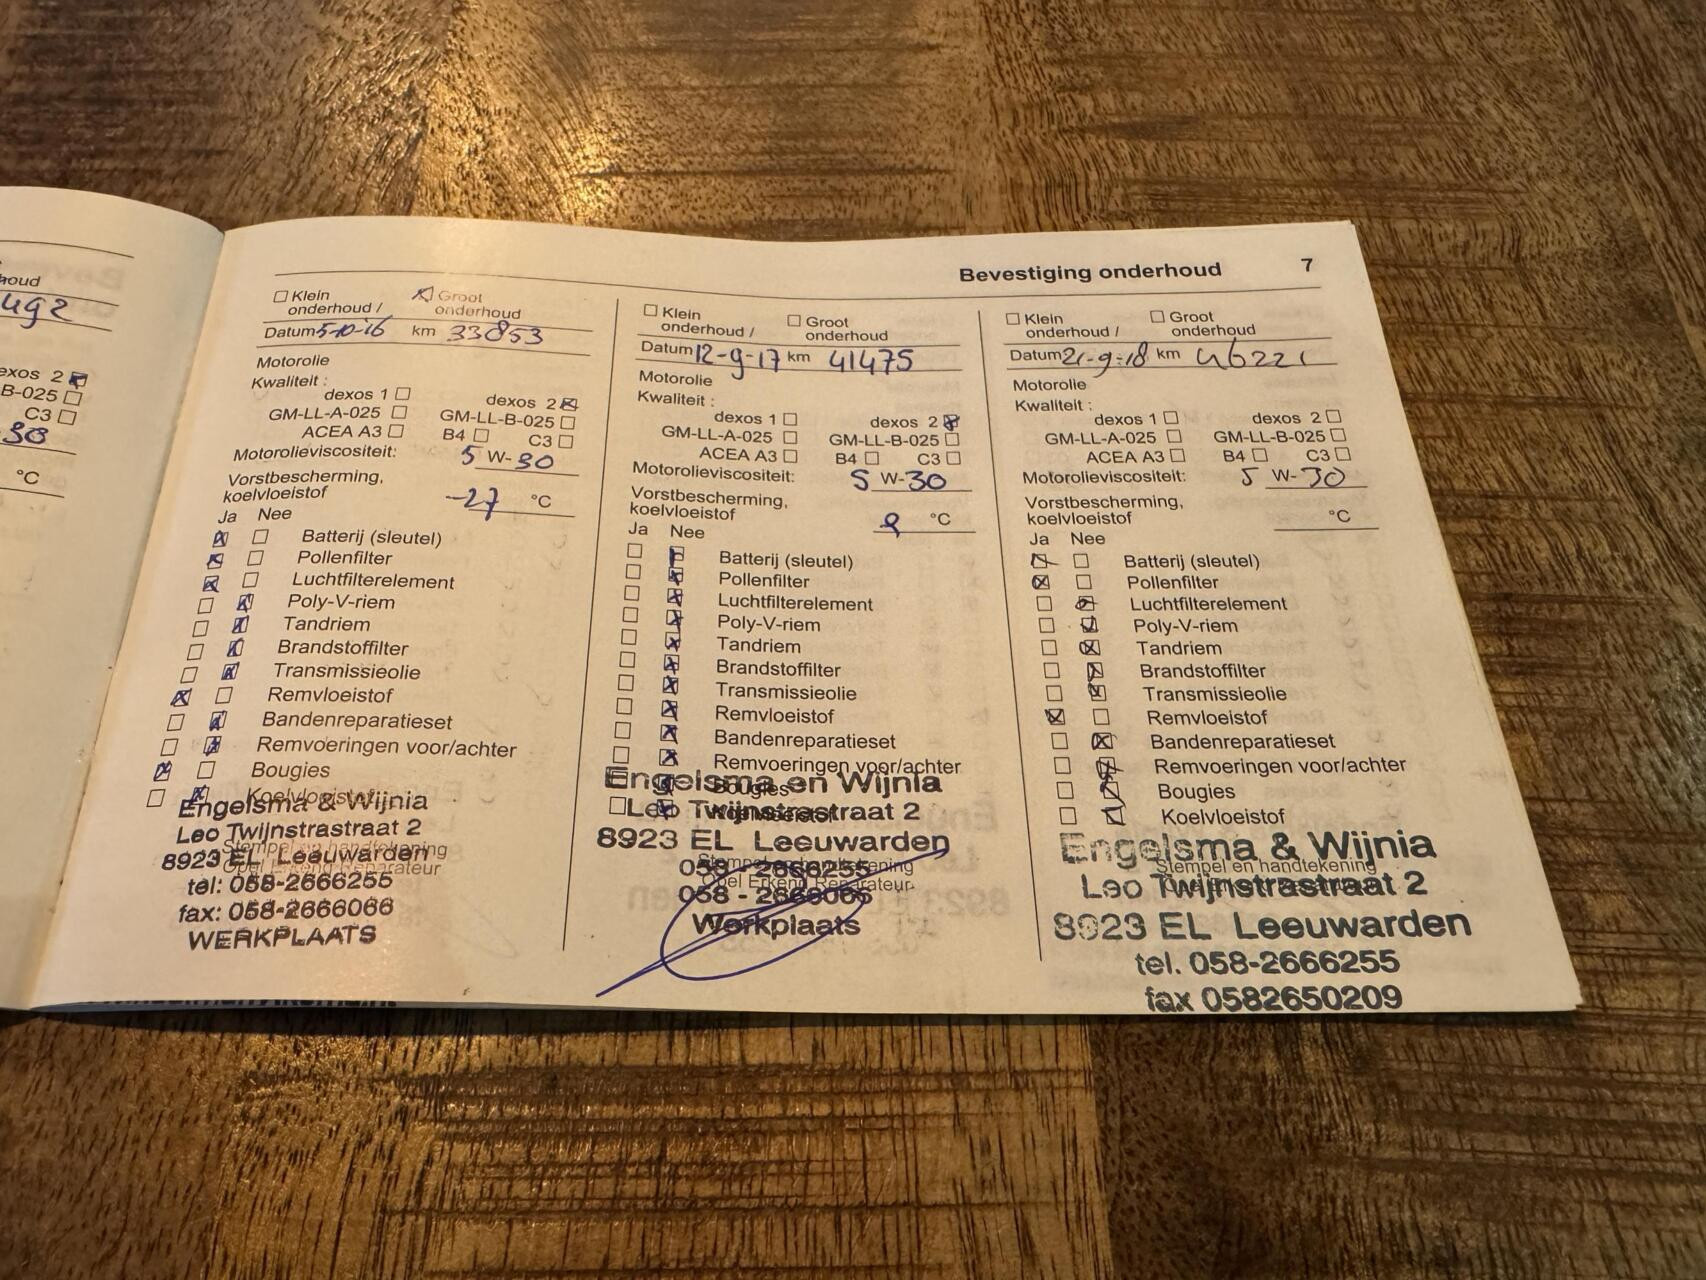 houd
exos 2
B-025
C3
30
°C
Bevestiging onderhoud 7
Klein onderhoud /
Groot onderhoud
Datum 5-10-16 km 33853
Motorolie
Kwaliteit :
dexos 1 dexos 2
GM-LL-A-025 GM-LL-B-025
ACEA A3 B4 C3
Motorolieviscositeit: 5 W-30
Vorstbescherming,
koelvloeistof -27 °C
Ja Nee
Batterij (sleutel)
Pollenfilter
Luchtfilterelement
Poly-V-riem
Tandriem
Brandstoffilter
Transmissieolie
Remvloeistof
Bandenreparatieset
Remvoeringen voor/achter
Bougies
Koelvloeistof
Engelsma & Wijnia
Leo Twijnstrastraat 2
Stempel en handtekening
8923 EL Leeuwarden
Opel Erkend Reparateur
tel: 058-2666255
fax: 058-2666066
WERKPLAATS
Klein onderhoud /
Groot onderhoud
Datum 12-9-17 km 41475
Motorolie
Kwaliteit :
dexos 1 dexos 2
GM-LL-A-025 GM-LL-B-025
ACEA A3 B4 C3
Motorolieviscositeit: 5 W-30
Vorstbescherming,
koelvloeistof °C
Ja Nee
Batterij (sleutel)
Pollenfilter
Luchtfilterelement
Poly-V-riem
Tandriem
Brandstoffilter
Transmissieolie
Remvloeistof
Bandenreparatieset
Remvoeringen voor/achter
Engelsma en Wijnia
Bougies
Leo Twijnstrastraat 2
Koelvloeistof
8923 EL Leeuwarden
Stempel en handtekening
058 - 2666255
Opel Erkend Reparateur
058 - 2666066
Werkplaats
Klein onderhoud /
Groot onderhoud
Datum 21-9-18 km 46221
Motorolie
Kwaliteit :
dexos 1 dexos 2
GM-LL-A-025 GM-LL-B-025
ACEA A3 B4 C3
Motorolieviscositeit: 5 W-30
Vorstbescherming,
koelvloeistof °C
Ja Nee
Batterij (sleutel)
Pollenfilter
Luchtfilterelement
Poly-V-riem
Tandriem
Brandstoffilter
Transmissieolie
Remvloeistof
Bandenreparatieset
Remvoeringen voor/achter
Bougies
Koelvloeistof
Engelsma & Wijnia
Stempel en handtekening
Leo Twijnstrastraat 2
8923 EL Leeuwarden
tel. 058-2666255
fax 0582650209